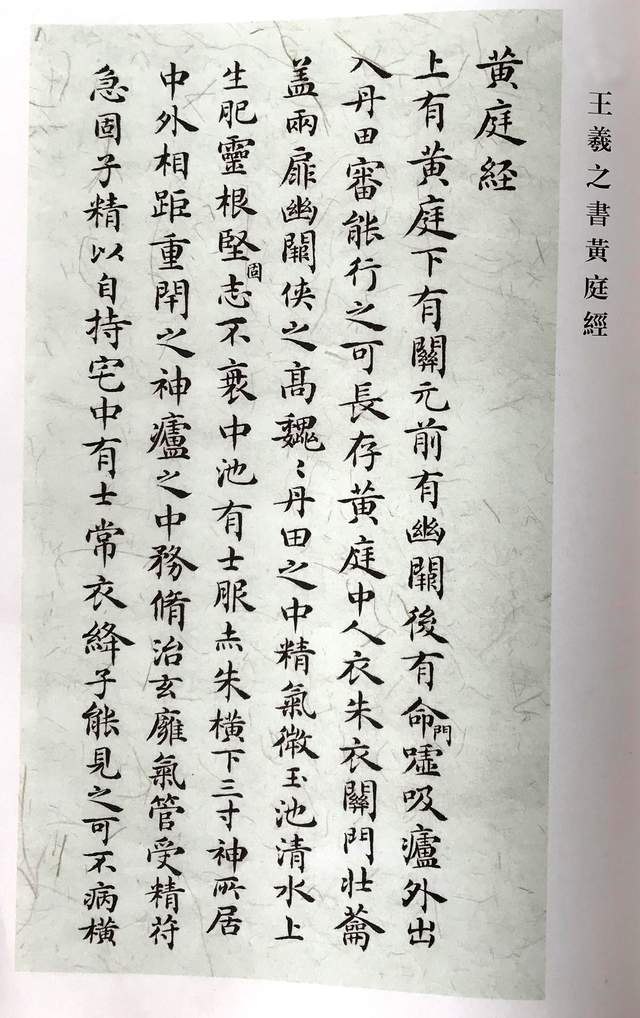 王羲之書黃庭經
黄庭経
上有黄庭下有關元前有幽闕後有命門嘘吸廬外出
入丹田審能行之可長存黄庭中人衣朱衣關門壮蘥
盖兩扉幽闕侠之高巍〻丹田之中精氣微玉池清水上
生肥靈根堅固志不衰中池有士服赤朱横下三寸神所居
中外相距重閇之神廬之中務脩治玄廱氣管受精苻
急固子精以自持宅中有士常衣絳子能見之可不病横